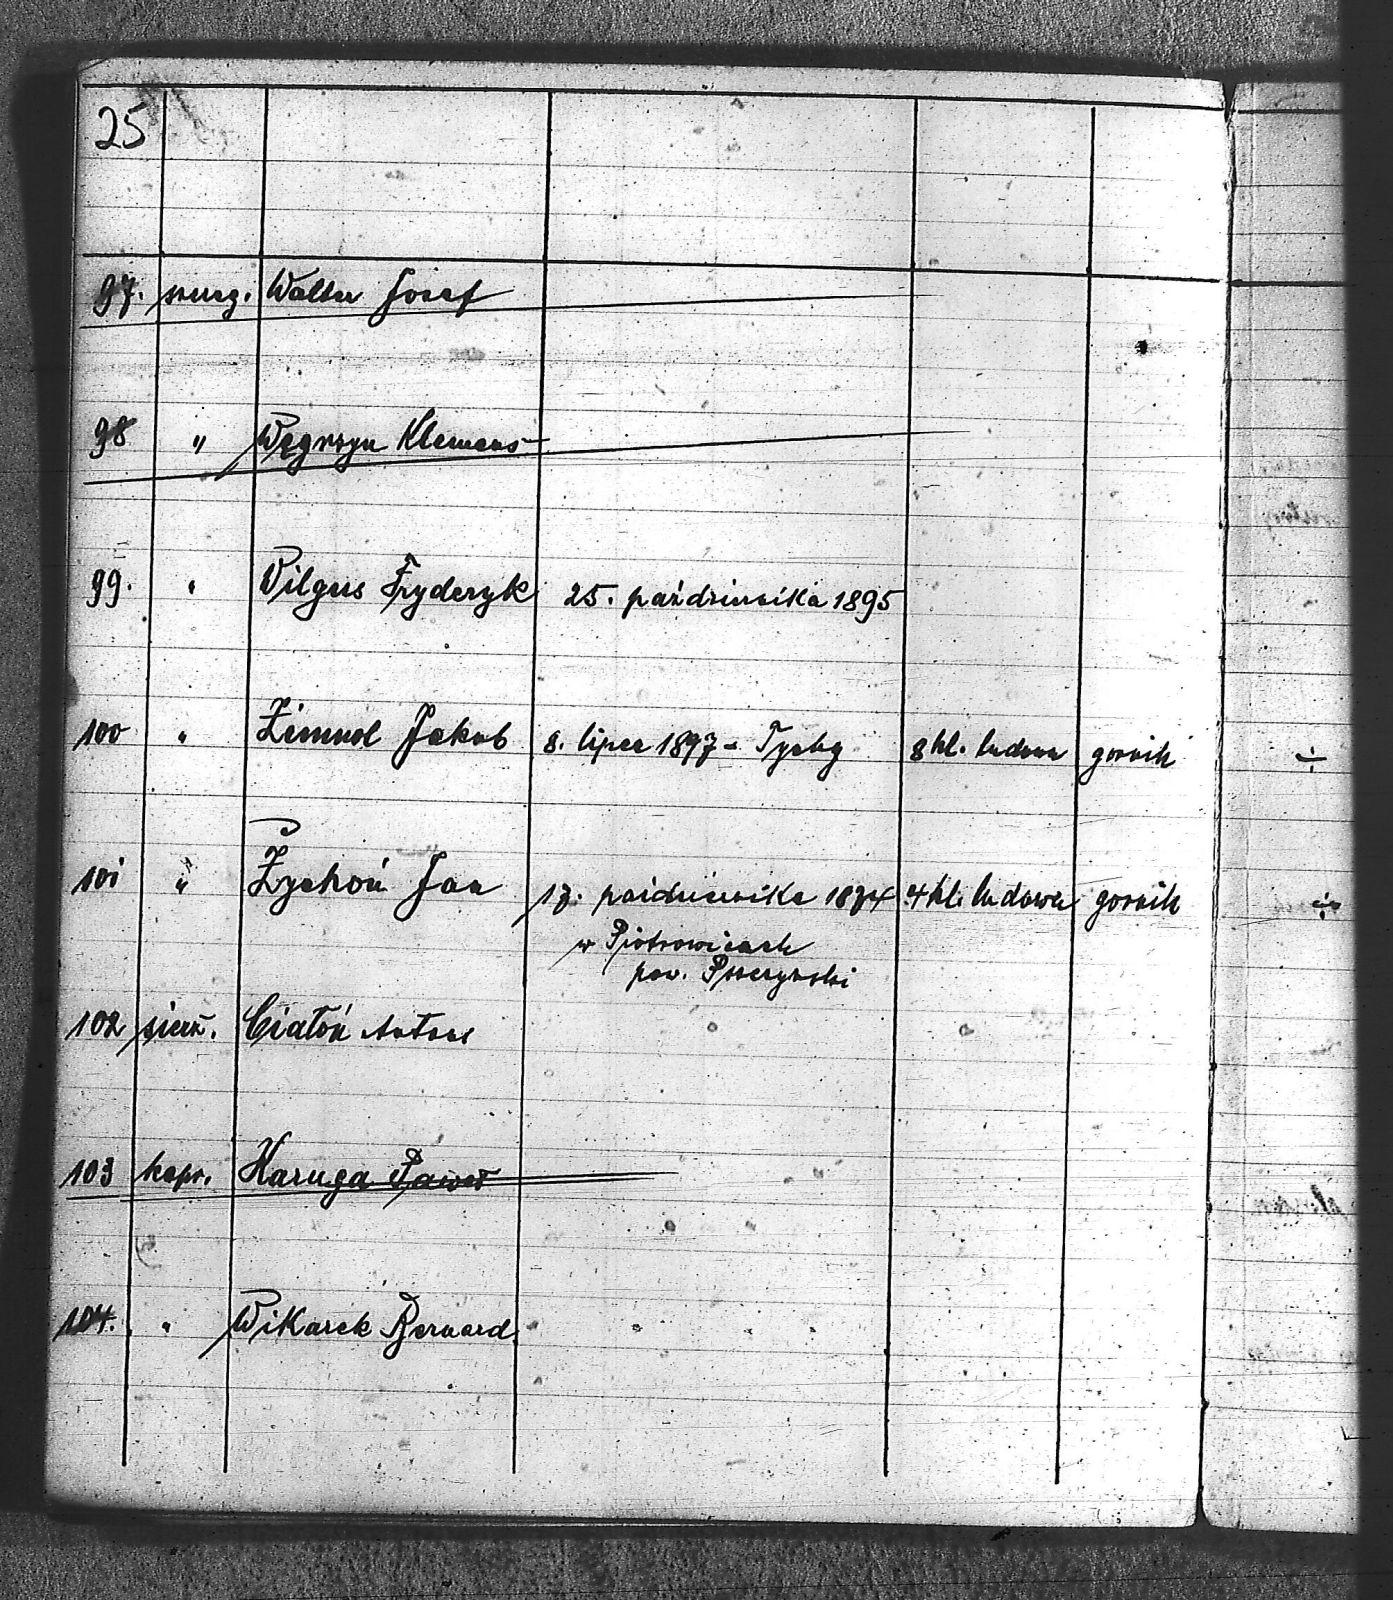 25
97. szereg. Walter Josef
98 " Węgrzyn Klemens
99. " Wilgus Fryderyk 25. października 1895
100 " Zimnol Jakob 8. lipca 1897 - Tychy 8 kl. ludowa gornik
101 " Zychoń Jan 17. października 1874 4 kl. ludowa gornik
w Piotrowicach
pow. Pszczyński
102 sierż. Ciałoń Antoni
103 kapr. Haruga Paweł
104. " Wikarek Bernard